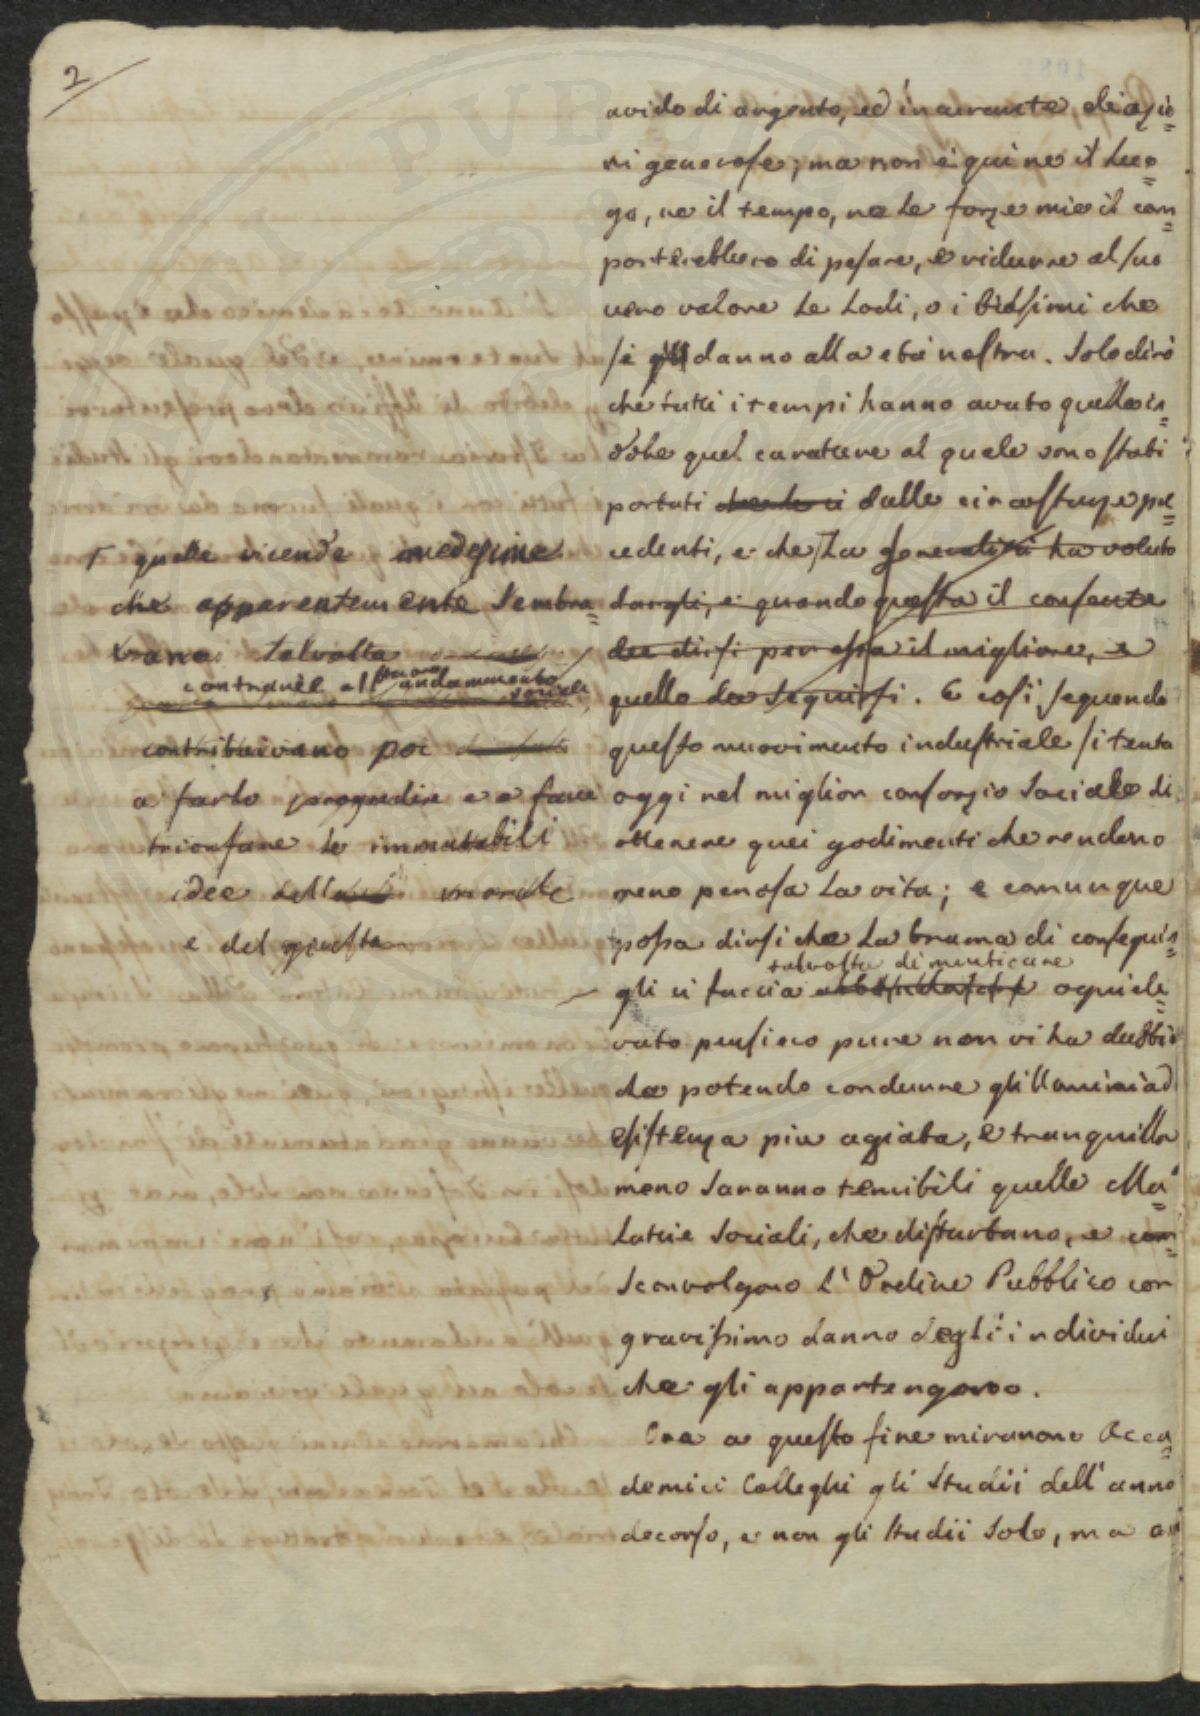 2
avido di argento, ed incurante di azio=
ni generose; ma non è qui ne il luo=
go, ne il tempo, ne le forze mie il com=
porterebbero di pesare, e ridurre al suo
vero valore le Lodi, o i biasimi che
si danno alla età nostra. Solo dirò
che tutti i tempi hanno avuto quella in=
dole quel carattere al quale sono stati
portati dalle circostanze pre=
cedenti, e che la generalità ha voluto
dargli, e quando questa il consente
dee dirsi per essa il migliore, e
quello da seguirsi. E così seguendo
questo muovimento industriale si tenta
oggi nel miglior consorzio Sociale di
ottenere quei godimenti che rendono
meno penosa La vita; e comunque
possa dirsi che La brama di conseguir=
talvolta dimenticare
gli ci faccia ogni ele=
vato pensiero pure non vi ha dubbio
che potendo condurre gli Uomini ad
esistenza più agiata, e tranquilla
meno saranno temibili quelle Ma=
lattie Sociali, che disturbano, e con=
sconvolgono L'Ordine Pubblico con
gravissimo danno degli individui
che gli appartengono.
Ora a questo fine miranono Acca=
demici Colleghi gli Studii dell'anno
decorso, e non gli Studii Solo, ma
quelle vicende medesime
che apparentemente Sembra=
vano talvolta
contrarie al buono andammento
sociale
contribuivano poi
a farlo progredire e a fare
trionfare le immutabili
idee della morale
e del giusto